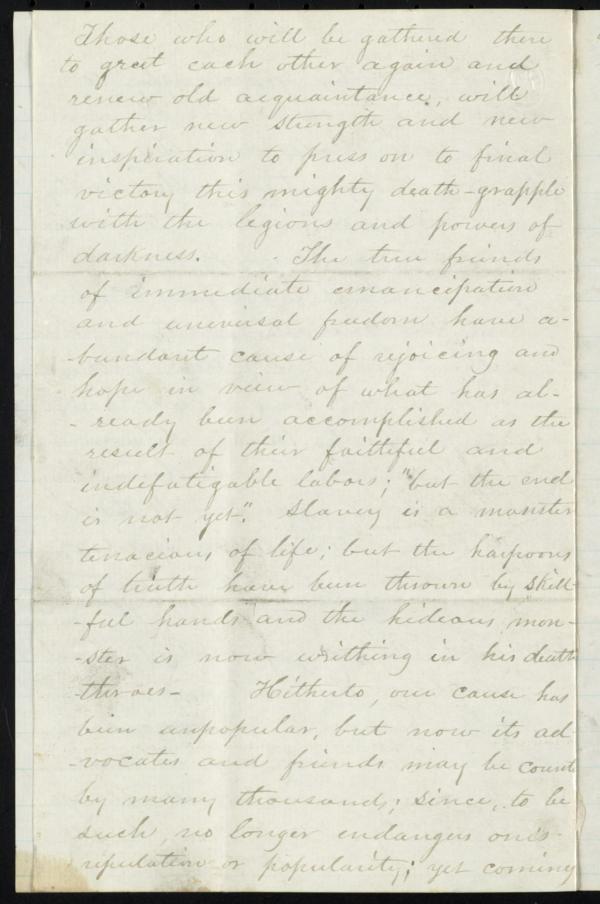 Those who will be gathered there
to greet each other again and
renew old acquaintance, will
gather new strength and new
inspiration to press on to final
victory this mighty death-grapple
with the legions and powers of
darkness. - The true friends
of immediate emancipation
and universal freedom have a-
-bundant cause of rejoicing and
hope in view of what has al-
-ready been accomplished as the
result of their faithful and
indefatigable labors; "but the end
is not yet". Slavery is a monster
tenacious of life; but the harpoons
of truth have been thrown by skill-
-ful hands and the hideous mon-
-ster is now writhing in his death
throes- Hitherto, our cause has
been unpopular, but now its ad
-vocates and friends may be count
by many thousands; since, to be
such, no longer endangers one's
reputation or popularity; yet coming